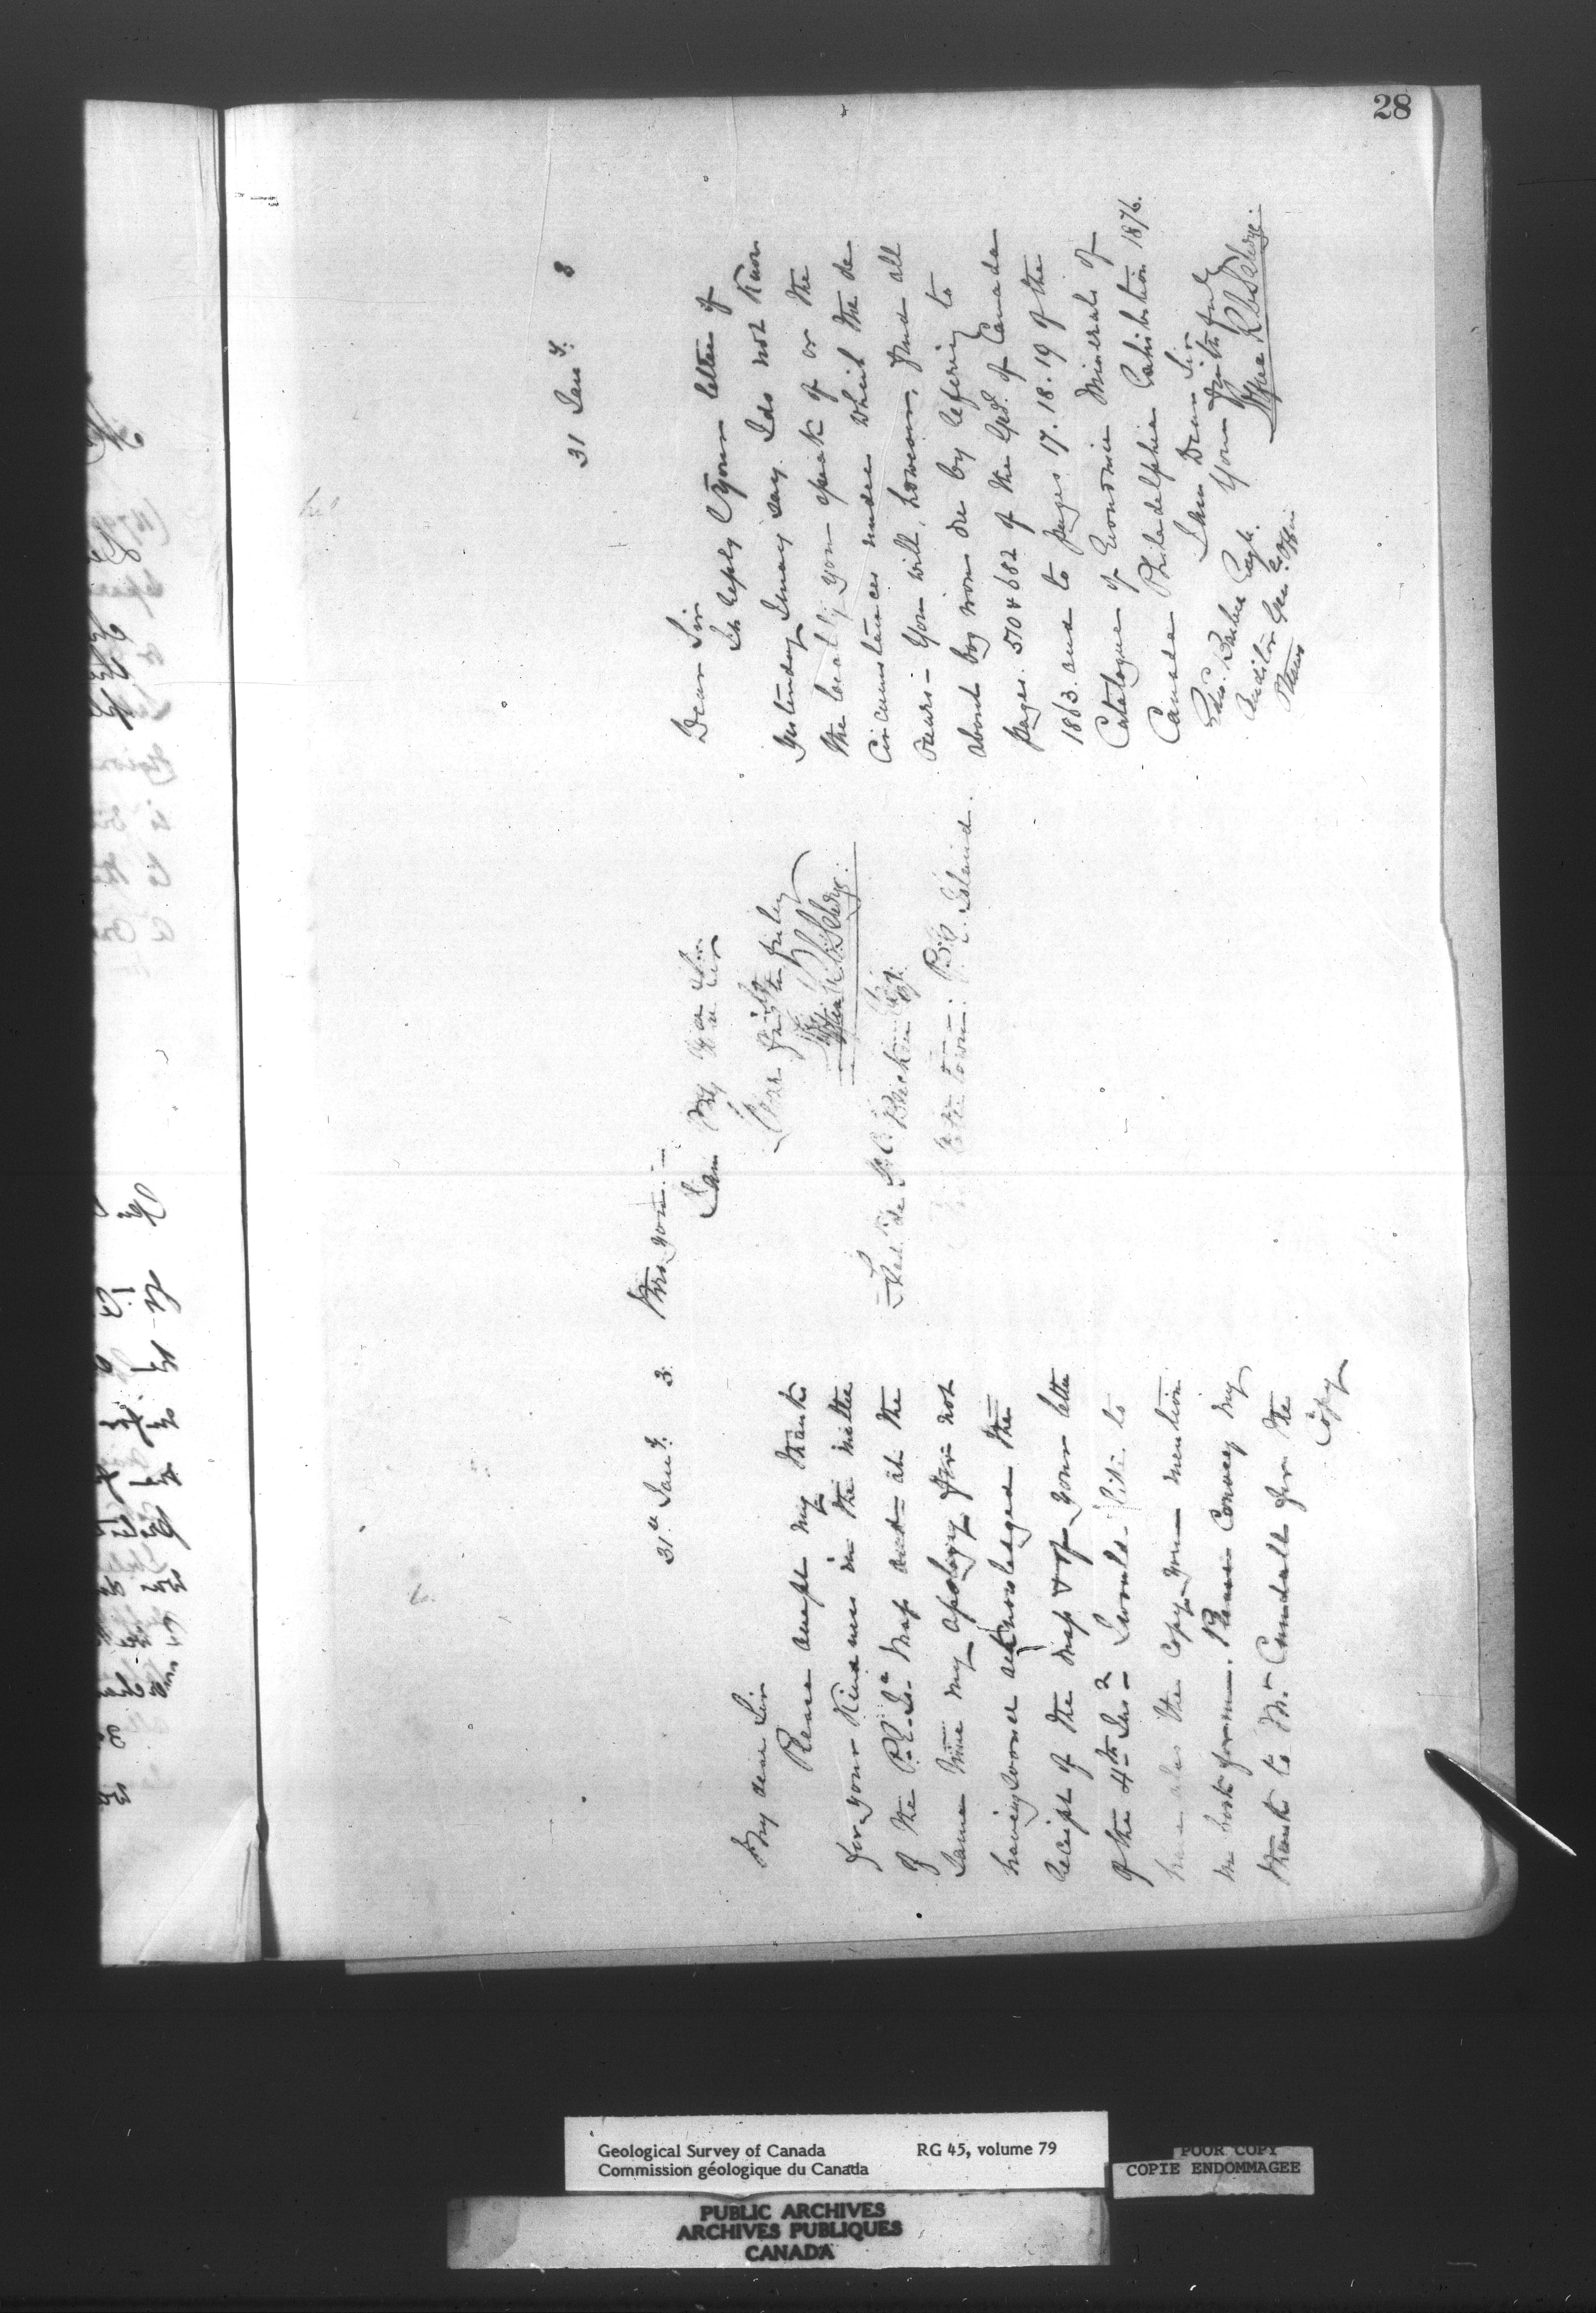 28
31st Jany. 3.
My dear Sir
Please accept my thanks
for your Kindness in the matter
of the P.E.Id. Map and at the
same time my apology for not
having sooner acknowledged the
receipt of the Map & of your letter
of the 4th Inst I would like to
have also the Copy you mention
in book form. Please Convey my
thanks to Mr. Cundall for the
Copy
from you.
I am My dear Sir
Yours faithfully
Fredk. de St. C. Brecken Esq.
Charlottetown: P.E. Island.
31 Jany. 8
Dear Sir
In reply to your letter of
yesterday I may say I do not Know
the locality you speak of or the
Circumstances under which the ore
occurs— You will, however, find all
about bog iron ore by refering to
pages 510 & 682 of the Geol. of Canada
1863. and to pages 17. 18. 19 of the
Catalogue of Economic Minerals of
Canada Philadelphia Exhibition 1876.
I am Dear Sir
Yours faithfully
Barber Esqr.
Auditor Genl. Office
Geological Survey of Canada RG 45, volume 79
Commission géologique du Canada
POOR COPY
COPIE ENDOMMAGEE
PUBLIC ARCHIVES
ARCHIVES PUBLIQUES
CANADA